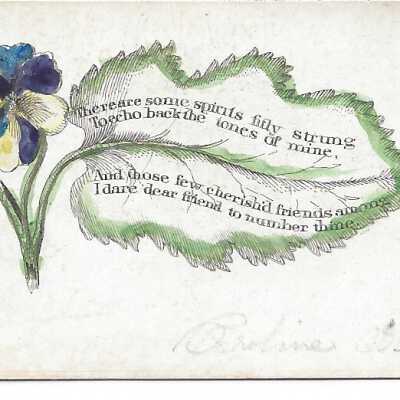 There are some spirits fitly strung
To echo back the tones of mine,
And those few cherish'd friends among
I dare dear friend to number thine.
Caroline